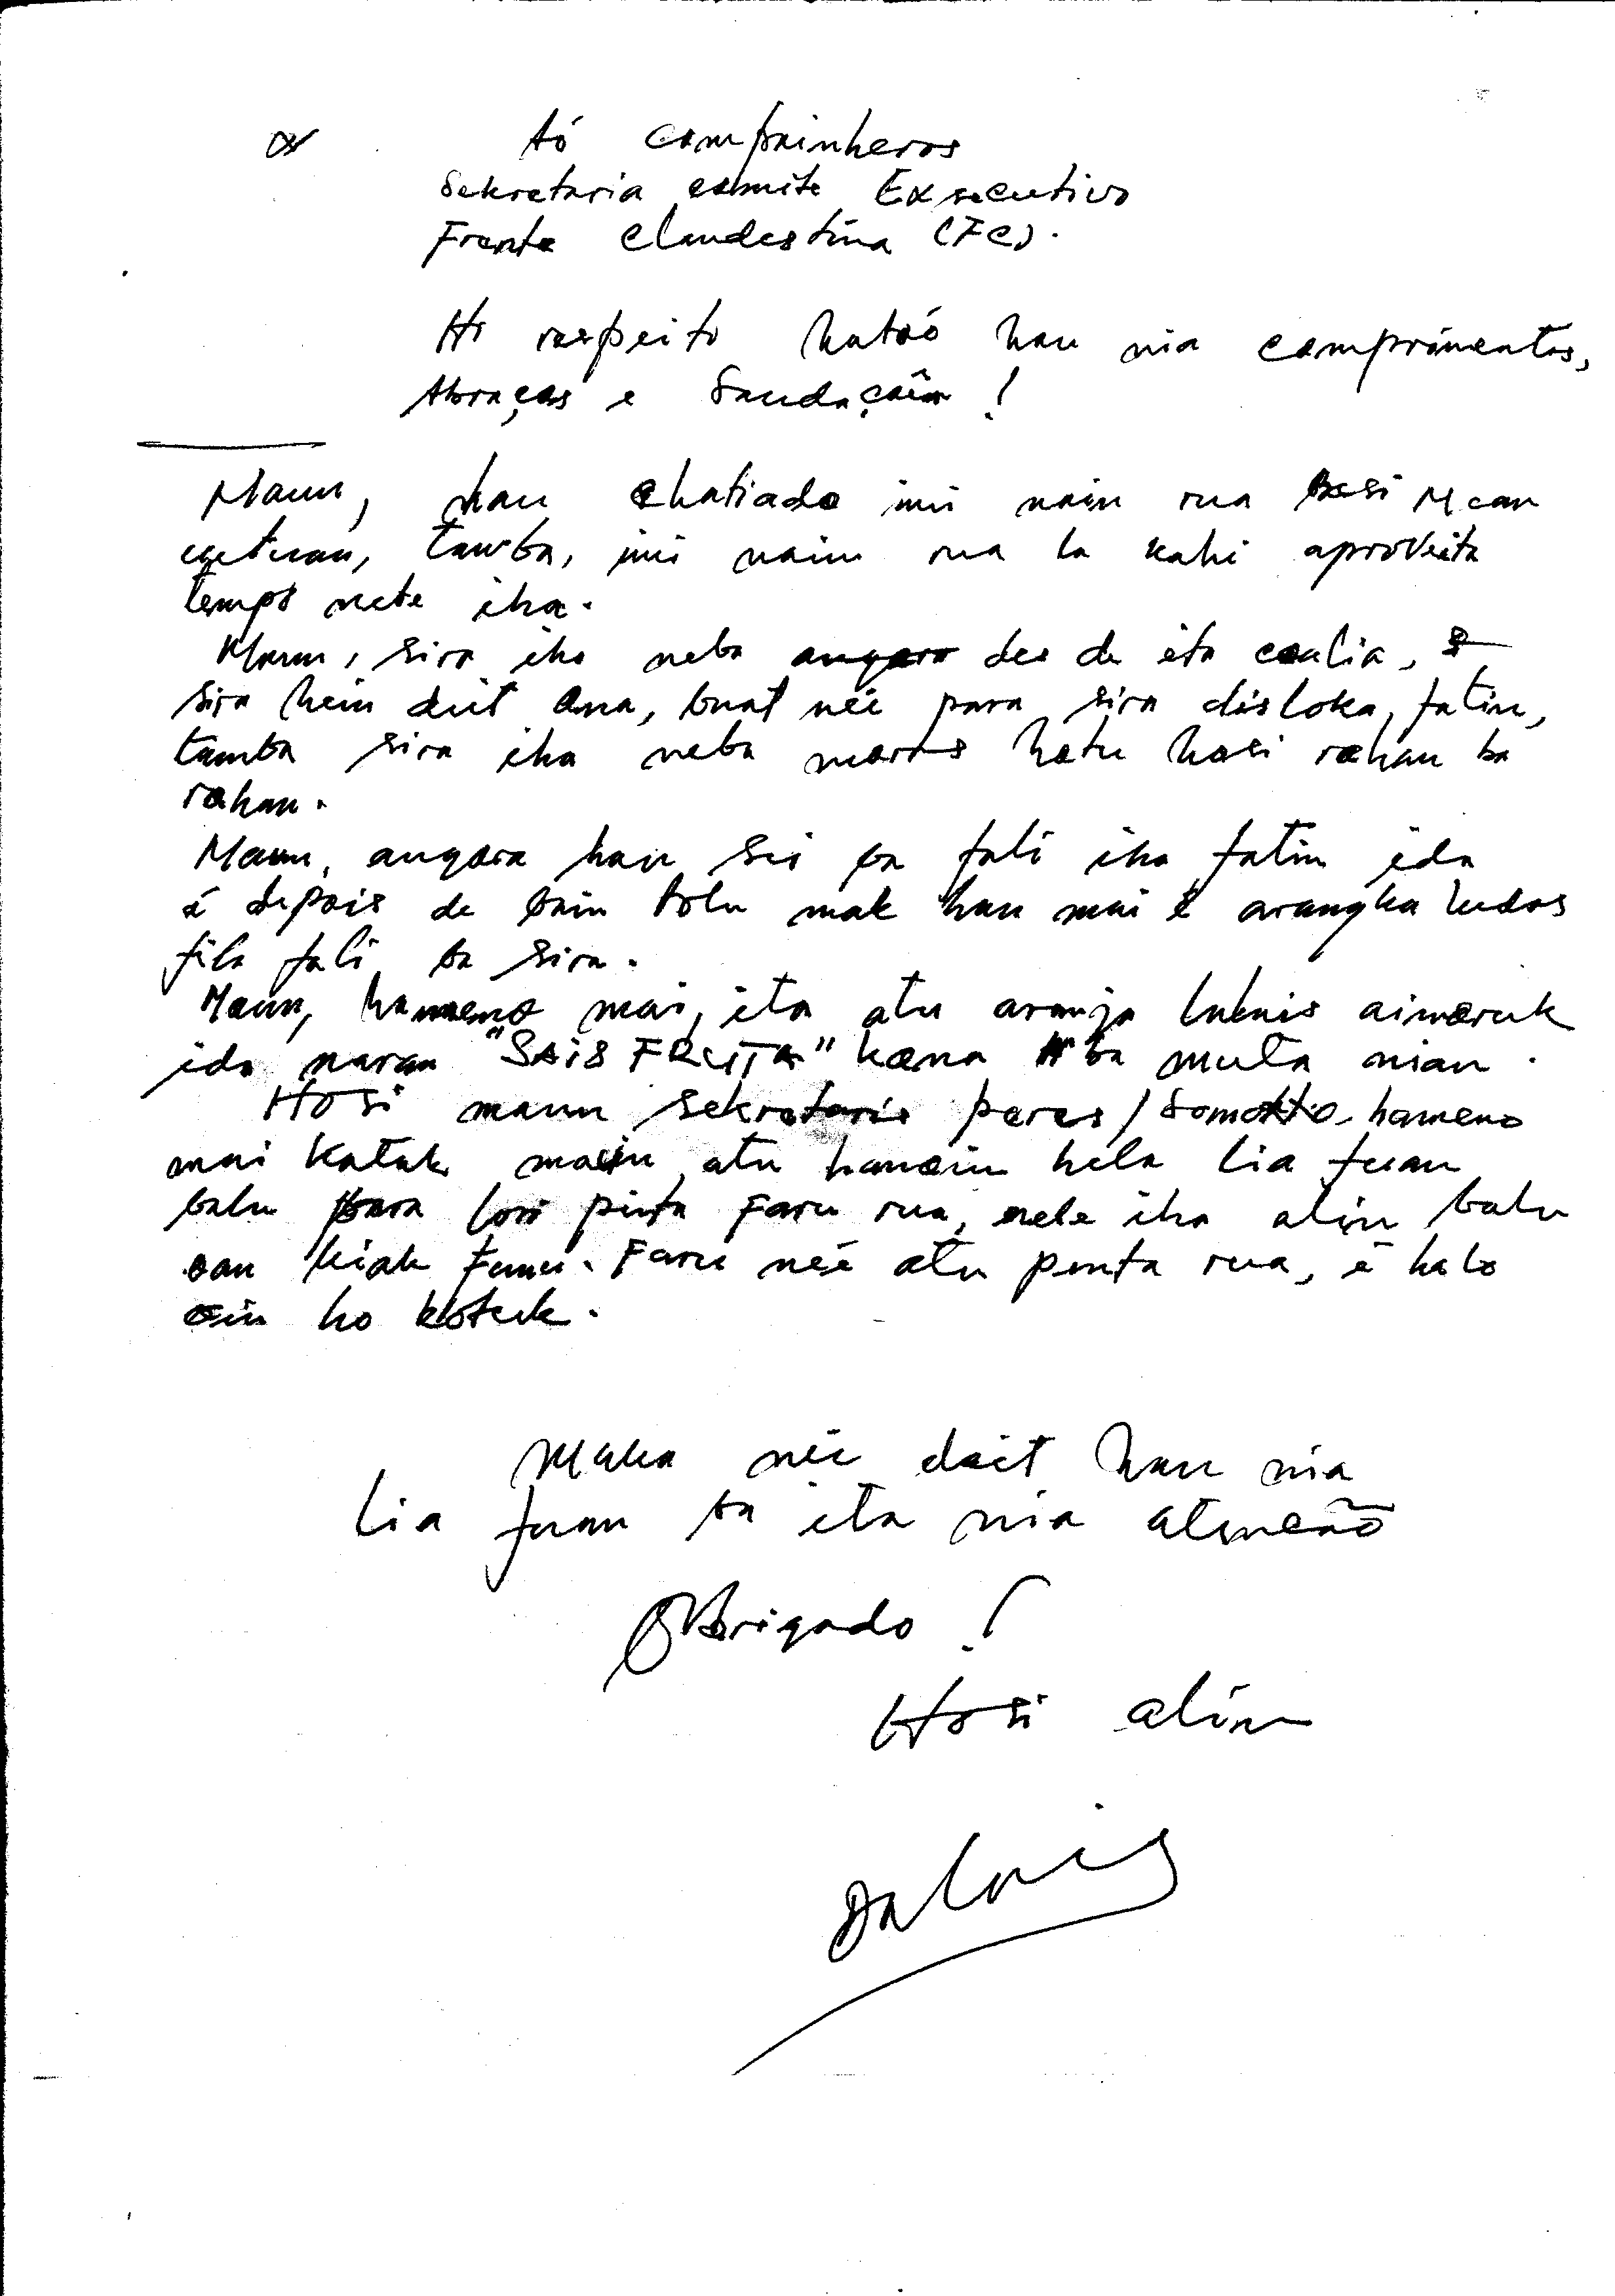 Aó compainheros
Sekretaria comite Exsecutivo
Frente Clandestina (FC).
Ho respeito hatoó hau nia comprimentos,
Abraços e Saudaçoin!
Maun, hau chatiado imi nain rua basi Mean
oituan, tamba, imi nain rua la kahi aproveita
tempo nebe iha.
Maun, sira iha neba des de ita coalia,
sira hein deit ona, buat neé para sira disloka fatin,
tamba sira iha neba moras hotu hosi rahan ba
rahan.
Maun, angora hau sei ba fali iha fatin ida
é depois de bain tolu mak hau mai é arangka ludos
fila fali ba sira.
Maun, hameno mai, ita atu aranja lubuis aimoruk
ida naran "SAIS FRUTA" kona ba muta nian.
Hosi maun sekretaris peres/Somotxo hameno
mai katak maun atu hanoin hela lia fuan
balu para lori pinta Faru rua, nebe iha alin balu
oan kiak funu. Faru neé atu penta rua, é halo
oin ho kotuk.
Maka neé deit hau nia
lia fuan ba ita nia atensaõ
Obrigado!
Hosi alin